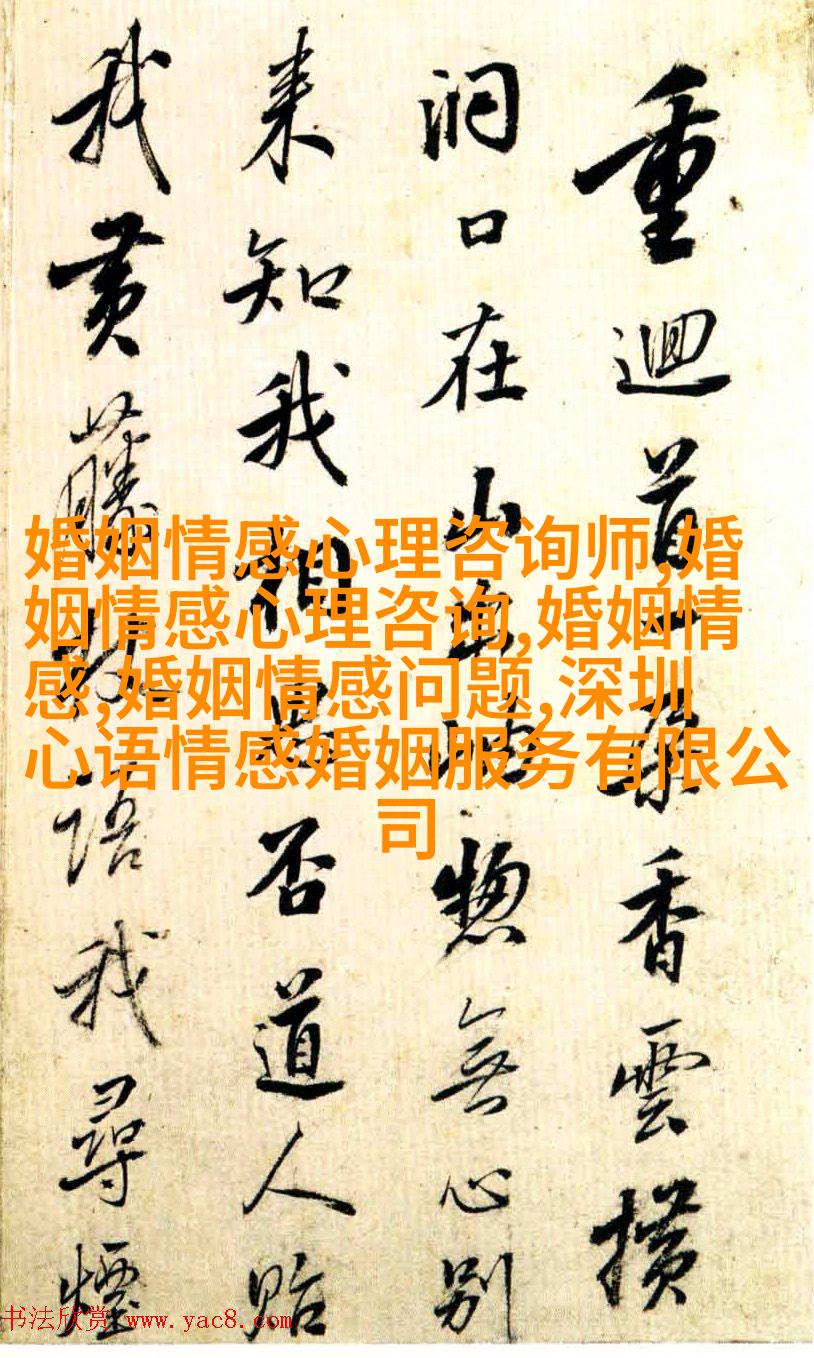 重迴首香雲
洞口在山惣無心别
来知我相思否道人貽
我黄藤杖语我尋煙
婚姻情感心理咨询师,婚
姻情感心理咨询,婚姻情
感,婚姻情感问题,深圳
心语情感婚姻服务有限公
司
书法欣赏 www.yac8.com